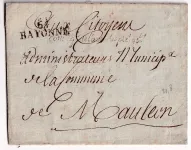 64
BAYONNE
Citoyens
Administrateurs Municip
de la Commune
de Mauleon